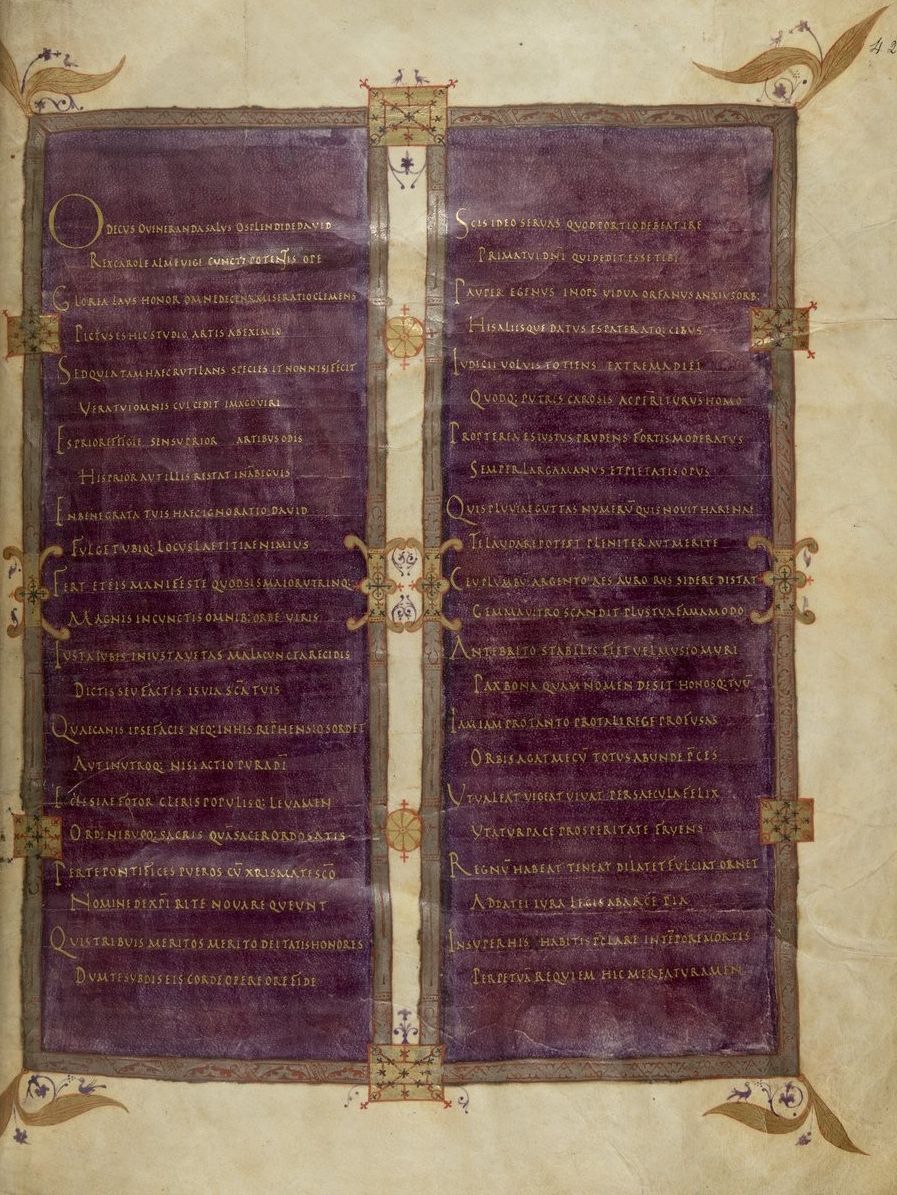 42
O DECUS O UENERANDA SALUS O SPLENDIDE DAVID
REX CAROLE ALME UIGE CUNCTIPOTENTIS OPE
GLORIA LAUS HONOR OMNE DECENS MISERATIO CLEMENS
PICTUS ES HIC STUDIO ARTIS AB EXIMIO
SED QUIA TAM HAEC RUTILANS SPECIES IT NON NISI FECIT
VERA TUI OMNIS CUI CEDIT IMAGO UIRI
ES PRIOR EFFIGIE SENSU PRIOR ARTIBUS ODIS
HIS PRIOR AUT ILLIS RESTAT IN ABIGUIS
EN BENE GRATA TUIS HAEC IGNORATIO DAVID
FULGET UBIQ: LOCUS LAETITIAE NIMIUS
FERT ET EIS MANIFESTE QUOD SIS MAIOR UTRINQ:
MAGNIS IN CUNCTIS OMNIB: ORBE UIRIS
IUSTA IUBIS INIUSTA UETAS MALA CUNCTA RECIDIS
DICTIS SEU FACTIS IS UIA SCĀ TUIS
QUAE CANIS IPSE FACIS NEQ: IN HIS REPHENSIO SORDET
AUT IN UTROQ: NISI ACTIO PURA DĪ
ECLESIAE FOTOR CLERIS POPULISQ: LEUAMEN
ORDINIBUSQ: SACRIS QUĀ SACER ORDO SATIS
PER TE PONTIFICES PUEROS CŪ XRISMATE SCŌ
NOMINE DE XPI RITE NOUARE QUEUNT
QUIS TRIBUIS MERITOS MERITO DEITATIS HONORES
DUM TE SUBDIS EIS CORDE OPERE ORE FIDE
SCIS IDEO SERUAS QUOD PORTIO DEBEAT IRE
PRIMATUI DNI QUI DEDIT ESSE TIBI
PAUPER EGENUS INOPS UIDUA ORFANUS ANXIUS ORB:
HIS ALIISQUE DATUS ES PATER ATQ: CIBUS
IUDICII UOLUIS TOTIENS EXTREMA DIEI
QUODQ: PUTRIS CAROSIS ACPERITURUS HOMO
PROPTEREA ES IUSTUS PRUDENS FORTIS MODERATUS
SEMPER LARGA MANUS ET PIETATIS OPUS
QUIS PLUUIAE GUTTAS NUMERŪ QUIS NOUIT HARENAE
IS LAUDARE POTEST PLENITER AUT MERITE
CEU PLUMBŪ ARGENTO AES AURO RUS SIDERE DISTAT
GEMMA UITRO SCANDIT PLUS TUA FAMA MODO
ANTE BRITO STABILIS FIET UEL MUSIO MURI
PAX BONA QUAM NOMEN DESIT HONOSQ: TUŪ
IAM IAM PRO TANTO PRO TALI REGE PROFUSAS
ORBIS AGAT MECŪ TOTUS ABUNDE PCES
UT UALEAT UIGEAT VIVAT PER SAECULA FELIX
UTATUR PACE PROSPERITATE FRUENS
REGNŪ HABEAT TENEAT DILATET FULCIAT ORNET
ADDAT EI IURA LEGIS AB ARCE PIA
INSUPER HIS HABITIS PCLARE IN TĒPORE MORTIS
PERPETUĀ REQUIEM HIC MEREATUR AMEN